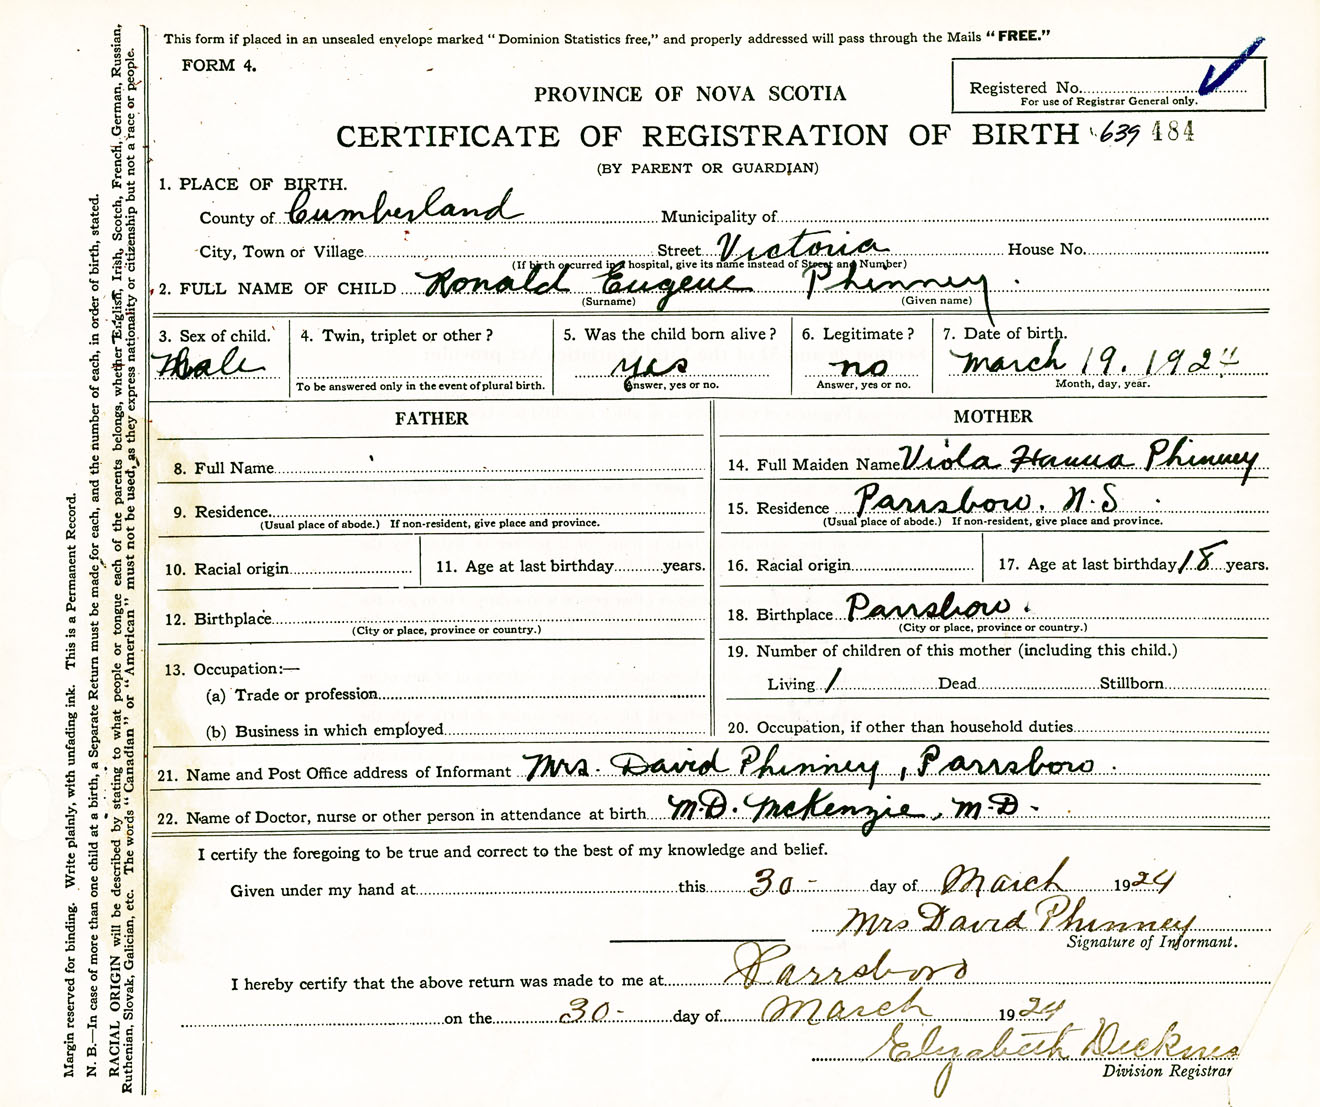 This form if placed in an unsealed envelope marked "Dominion Statistics free," and properly addressed will pass through the Mails "FREE."
FORM 4.
Registered No.
For use of Registrar General only.
PROVINCE OF NOVA SCOTIA
CERTIFICATE OF REGISTRATION OF BIRTH 639 484
(BY PARENT OR GUARDIAN)
1. PLACE OF BIRTH.
County of Cumberland Municipality of
City, Town or Village Street Victoria House No.
(If birth occurred in a hospital, give its name instead of Street and Number)
2. FULL NAME OF CHILD Ronald Eugene Phinney
(Surname) (Given name)
3. Sex of child. 4. Twin, triplet or other? 5. Was the child born alive? 6. Legitimate? 7. Date of birth.
Male yes no March 19. 1924
To be answered only in the event of plural birth. Answer, yes or no. Answer, yes or no. Month, day, year.
FATHER
8. Full Name
9. Residence.
(Usual place of abode.) If non-resident, give place and province.
10. Racial origin 11. Age at last birthday years.
12. Birthplace
(City or place, province or country.)
13. Occupation:—
(a) Trade or profession
(b) Business in which employed
MOTHER
14. Full Maiden Name Viola Hanna Phinney
15. Residence Parrsboro. N.S
(Usual place of abode.) If non-resident, give place and province.
16. Racial origin 17. Age at last birthday 18 years.
18. Birthplace Parrsboro.
(City or place, province or country.)
19. Number of children of this mother (including this child.)
Living 1 Dead Stillborn
20. Occupation, if other than household duties
21. Name and Post Office address of Informant Mrs. David Phinney, Parrsboro.
22. Name of Doctor, nurse or other person in attendance at birth M.D. McKenzie, M.D.
I certify the foregoing to be true and correct to the best of my knowledge and belief.
Given under my hand at this 30- day of March 1924
Mrs David Phinney
Signature of Informant.
I hereby certify that the above return was made to me at Parrsboro
on the 30- day of March 1924
Elizabeth
Division Registrar
Margin reserved for binding. Write plainly, with unfading ink. This is a Permanent Record.
N. B.—In case of more than one child at a birth, a Separate Return must be made for each, and the number of each, in order of birth, stated.
RACIAL ORIGIN will be described by stating to what people or tongue each of the parents belongs, whether English, Irish, Scotch, French, German, Russian,
Ruthenian, Slovak, Galician, etc. The words "Canadian" or "American" must not be used, as they express nationality or citizenship but not a race or people.